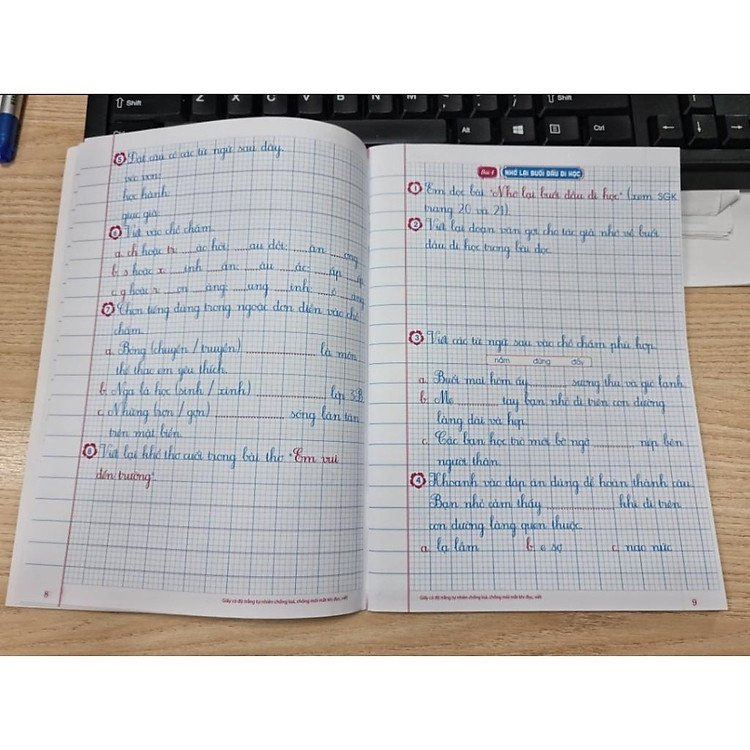 5 Đặt câu có các từ ngữ sau đây.
véo von:
học hành:
giục giã:
6 Viết vào chỗ chấm.
a. ch hoặc tr: ....ào hỏi; ....au dồi; ....ăn ....ong
b. s hoặc x: ....inh ....ắn; ....âu ....ắc; ....ấp ....ỉ
c. g hoặc r: ....ọn ....àng; ....ung ....inh; ....õ ....àng
7 Chọn tiếng đúng trong ngoặc đơn điền vào chỗ
chấm.
a. Bóng (chuyền / truyền) .................. là môn
thể thao em yêu thích.
b. Nga là học (sinh / xinh) .................. lớp 3B.
c. Những (rợn / gợn) .................. sóng lăn tăn
trên mặt biển.
8 Viết lại khổ thơ cuối trong bài thơ "Em vui
đến trường".
8
Giấy có độ trắng tự nhiên chống loá, chống mỏi mắt khi đọc, viết
Bài 4 NHỚ LẠI BUỔI ĐẦU ĐI HỌC
1 Em đọc bài "Nhớ lại buổi đầu đi học" (xem SGK
trang 20 và 21).
2 Viết lại đoạn văn gợi cho tác giả nhớ về buổi
đầu đi học trong bài đọc.
3 Viết các từ ngữ sau vào chỗ chấm phù hợp.
nắm đứng đầy
a. Buổi mai hôm ấy .............. sương thu và gió lạnh.
b. Mẹ .............. tay bạn nhỏ đi trên con đường
làng dài và hẹp.
c. Các bạn học trò mới bỡ ngỡ .............. nép bên
người thân.
4 Khoanh vào đáp án đúng để hoàn thành câu.
Bạn nhỏ cảm thấy .................. khi đi trên
con đường làng quen thuộc.
a. lạ lẫm b. e sợ c. náo nức
9
Giấy có độ trắng tự nhiên chống loá, chống mỏi mắt khi đọc, viết
Shift Z X C V B N M Shift
Ctrl Alt Alt Ctrl